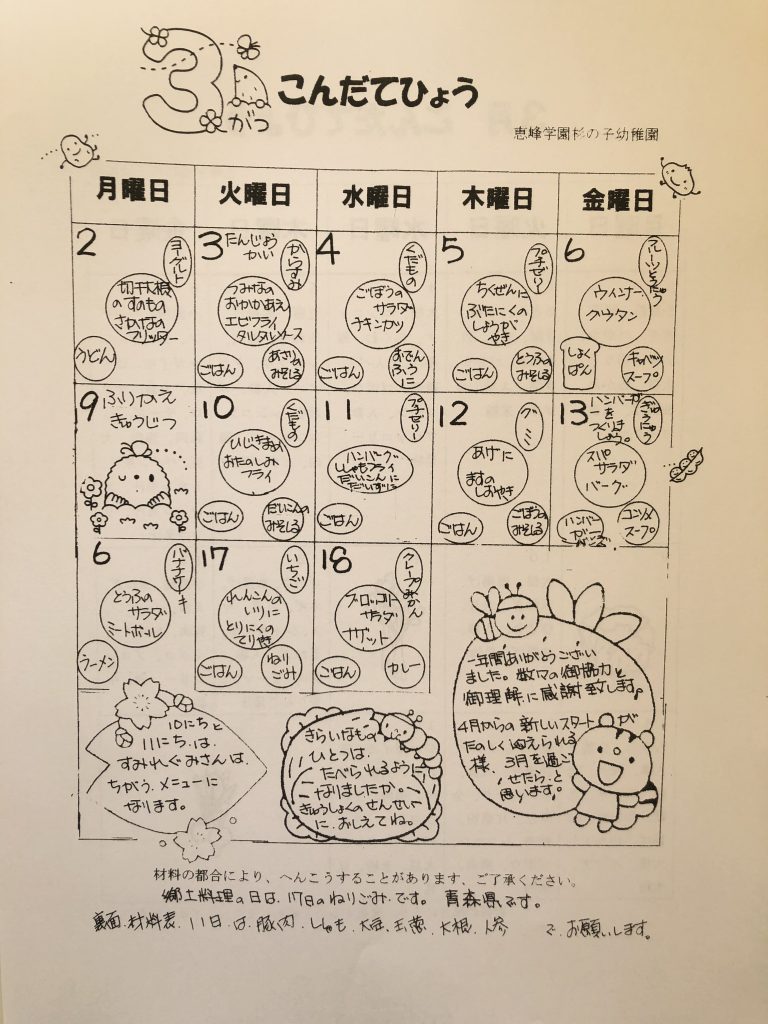 3がつ
こんだてひょう
恵峰学園杉の子幼稚園
月曜日
火曜日
水曜日
木曜日
金曜日
2
ヨーグルト
切干大根
のすのもの
さかなの
フリッター
うどん
3
たんじょう
かい
からすみ
つみなの
おかかあえ
エビフライ
タルタルソース
ごはん
あさりの
みそしる
4
くだもの
ごぼうの
サラダ
チキンカツ
ごはん
おでん
ふう
に
5
プチゼリー
ちくぜんに
ぶたにくの
しょうが
やき
ごはん
とうふの
みそしる
6
ウィンナー
グラタン
しょく
ぱん
キャベツ
スープ
9
ふりかえ
きゅうじつ
10
くだもの
ひじきまめ
おたのしみ
フライ
ごはん
だいこんの
みそしる
11
プチゼリー
ハンバーグ
ししゃもフライ
だいこんに
だいずに
ごはん
12
グミ
あげに
ますの
しおやき
ごはん
ごぼうの
みそしる
13
ハンバーガ
ーを
つくりま
しょう。
ぎゅうにゅう
スパ
サラダ
バーグ
ハンバー
ガー
バンズ
コンソメ
スープ
6
バナナケーキ
とうふの
サラダ
ミートボール
ラーメン
17
いちご
れんこんの
いりに
とりにくの
てりやき
ごはん
ねり
ごみ
18
クレープみかん
ブロッコリー
サラダ
ナゲット
ごはん
カレー
一年間ありがとうござい
ました。数々の御協力と
御理解に感謝致します。
4月からの新しいスタートが
たのしく迎えられる
様、3月を過ご
せたら、と
思います。
10にちと
11にち、は、
すみれぐみさんは、
ちがう、メニューに
なります。
きらいなもの
ひとつは、
たべられるように
なりましたか。
きゅうしょくのせんせい
に、おしえてね。
材料の都合により、へんこうすることがあります、ご了承ください。
郷土料理の日は、17日のねりごみ、です。青森県です。
裏面、材料表、11日、は、豚肉、ししゃも、大豆、玉葱、大根、人参 で、お願いします。